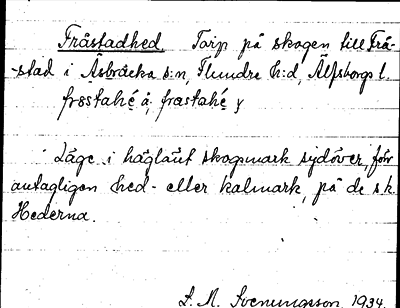 Fråstadhed Torp på skogen till Frå-
-stad i Åsbräcka s:n, Flundre h:d, Älfsborgs l.
frøstahé å, frøstahé y
Läge i höglänt skogsmark sydöver, för
antagligen hed- eller kalmark, på de s.k.
Hederna.
S. M. Svenungsson 1934.